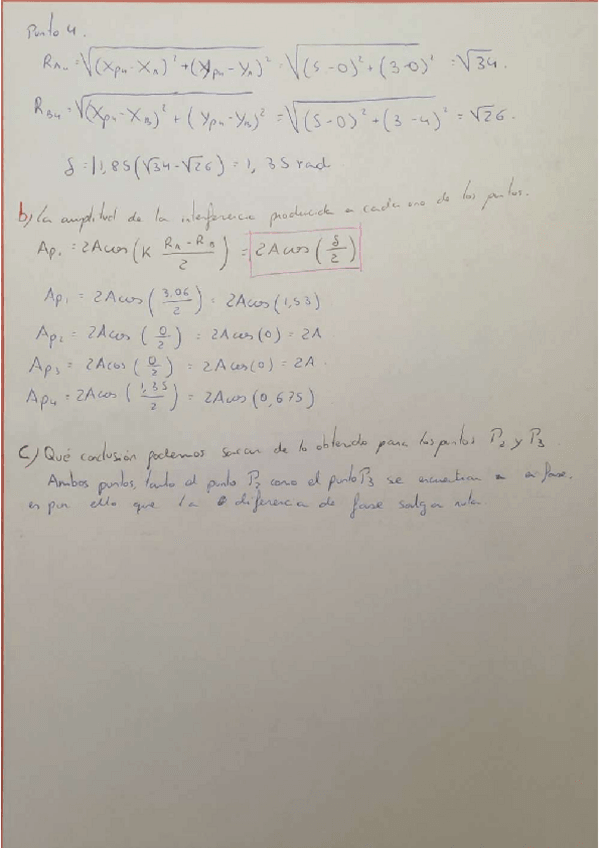 Punto 4.
R_A4 = √((x_P4 - x_A)² + (y_P4 - y_A)²) = √((5-0)² + (3-0)²) = √34.
R_B4 = √((x_P4 - x_B)² + (y_P4 - y_B)²) = √((5-0)² + (3-4)²) = √26.
δ = 11,85(√34-√26) = 1,35 rad
b) La amplitud de la interferencia producida a cada uno de los puntos.
A_P1 = 2A cos(K (R_A - R_B)/2) = 2A cos(δ/2)
A_P1 = 2A cos(3,06/2) = 2A cos(1,53)
A_P2 = 2A cos(0/2) = 2A cos(0) = 2A
A_P3 = 2A cos(0/2) = 2A cos(0) = 2A.
A_P4 = 2A cos(1,35/2) = 2A cos(0,675)
C) Qué conclusión podemos sacar de lo obtenido para los puntos P₂ y P₃
Ambos puntos, tanto el punto P₂ como el punto P₃ se encuentran en fase.
es por ello que la diferencia de fase salga nula